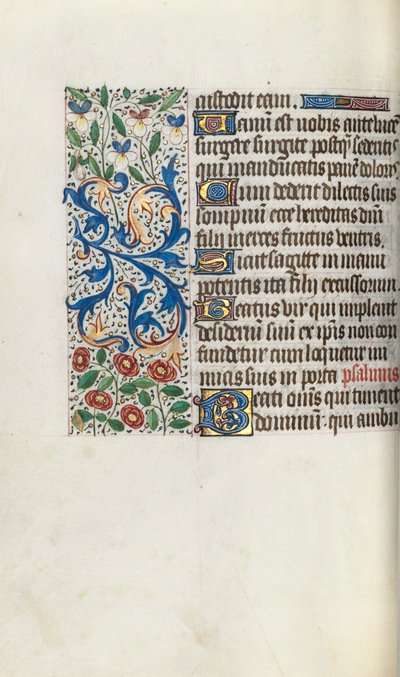 custodit eam.
Uanum est uobis ante lucem
surgere surgite postq̄ sederitis
qui manducatis panē doloris
Cum dederit dilectis suis
sompnum ecce hereditas dn̄i
filii merces fructus uentris.
Sicut sagitte in manu
potentis ita filii excussorum.
Beatus uir qui impleuit
desiderium suū ex ipis non con
fundetur cum loquetur ini
micis suis in porta psalmus
Beati om̄s qui timent
dominum. qui ambu